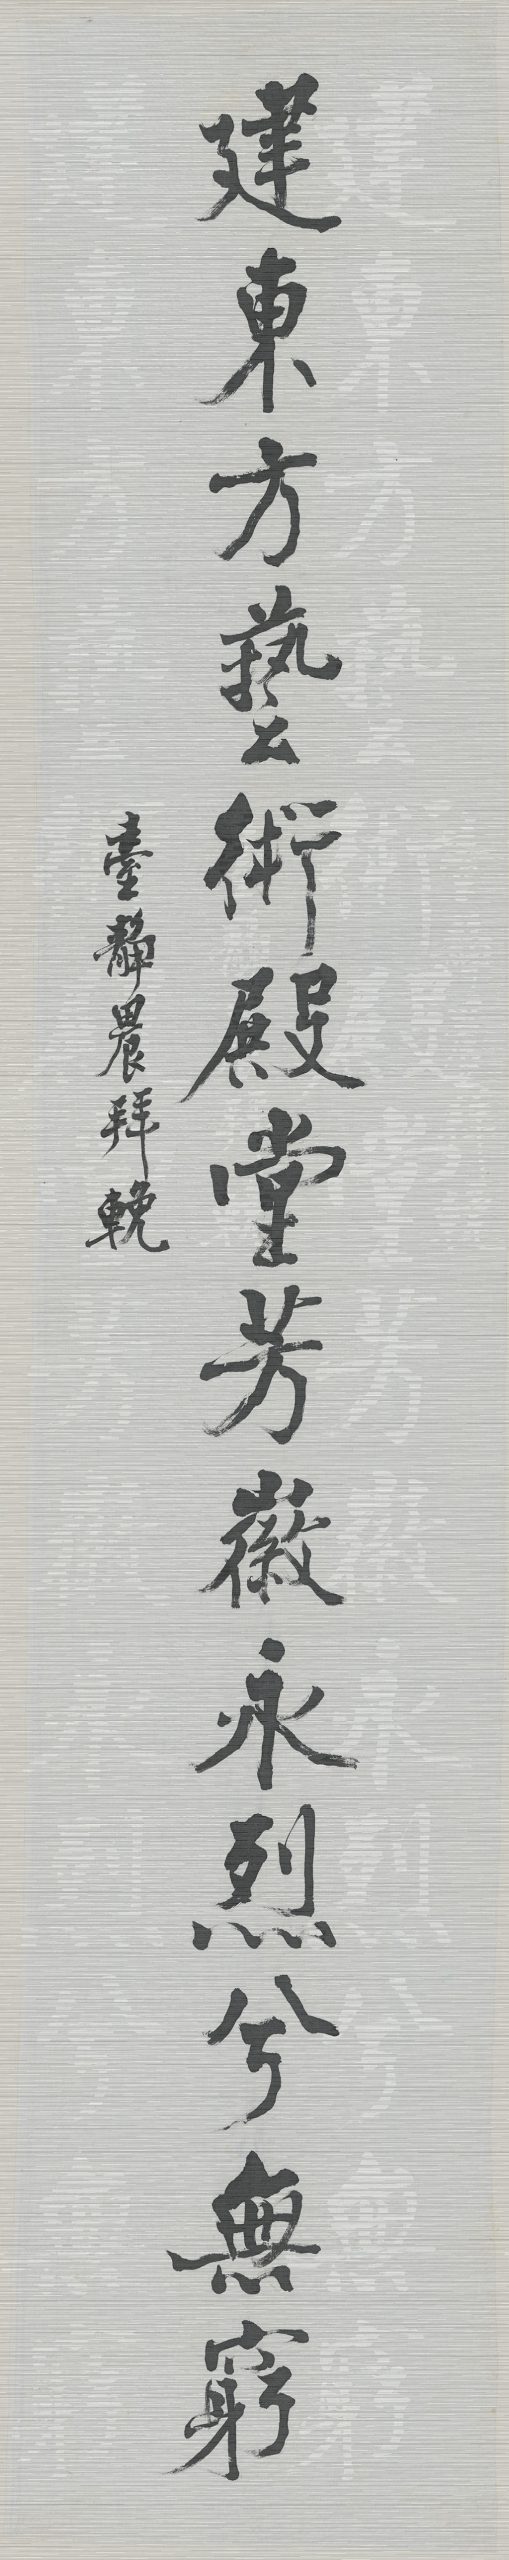 建東方藝術殿堂芳徽永烈兮無窮
臺靜農拜輓